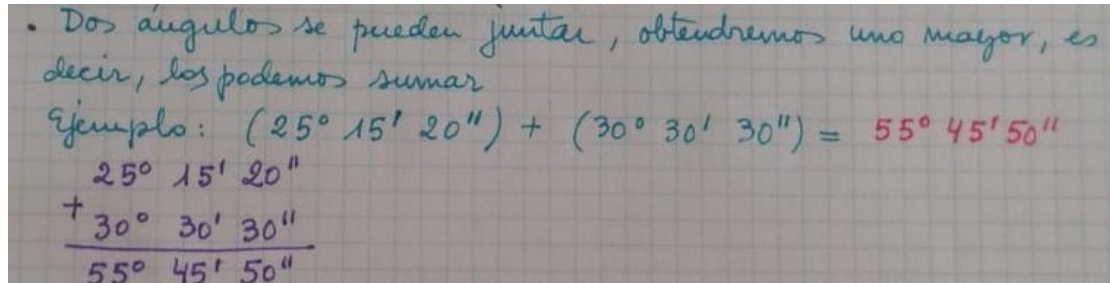 • Dos ángulos se pueden juntar, obtendremos uno mayor, es
decir, los podemos sumar
Ejemplo: (25° 15' 20") + (30° 30' 30") = 55° 45' 50"
25° 15' 20"
+ 30° 30' 30"
55° 45' 50"